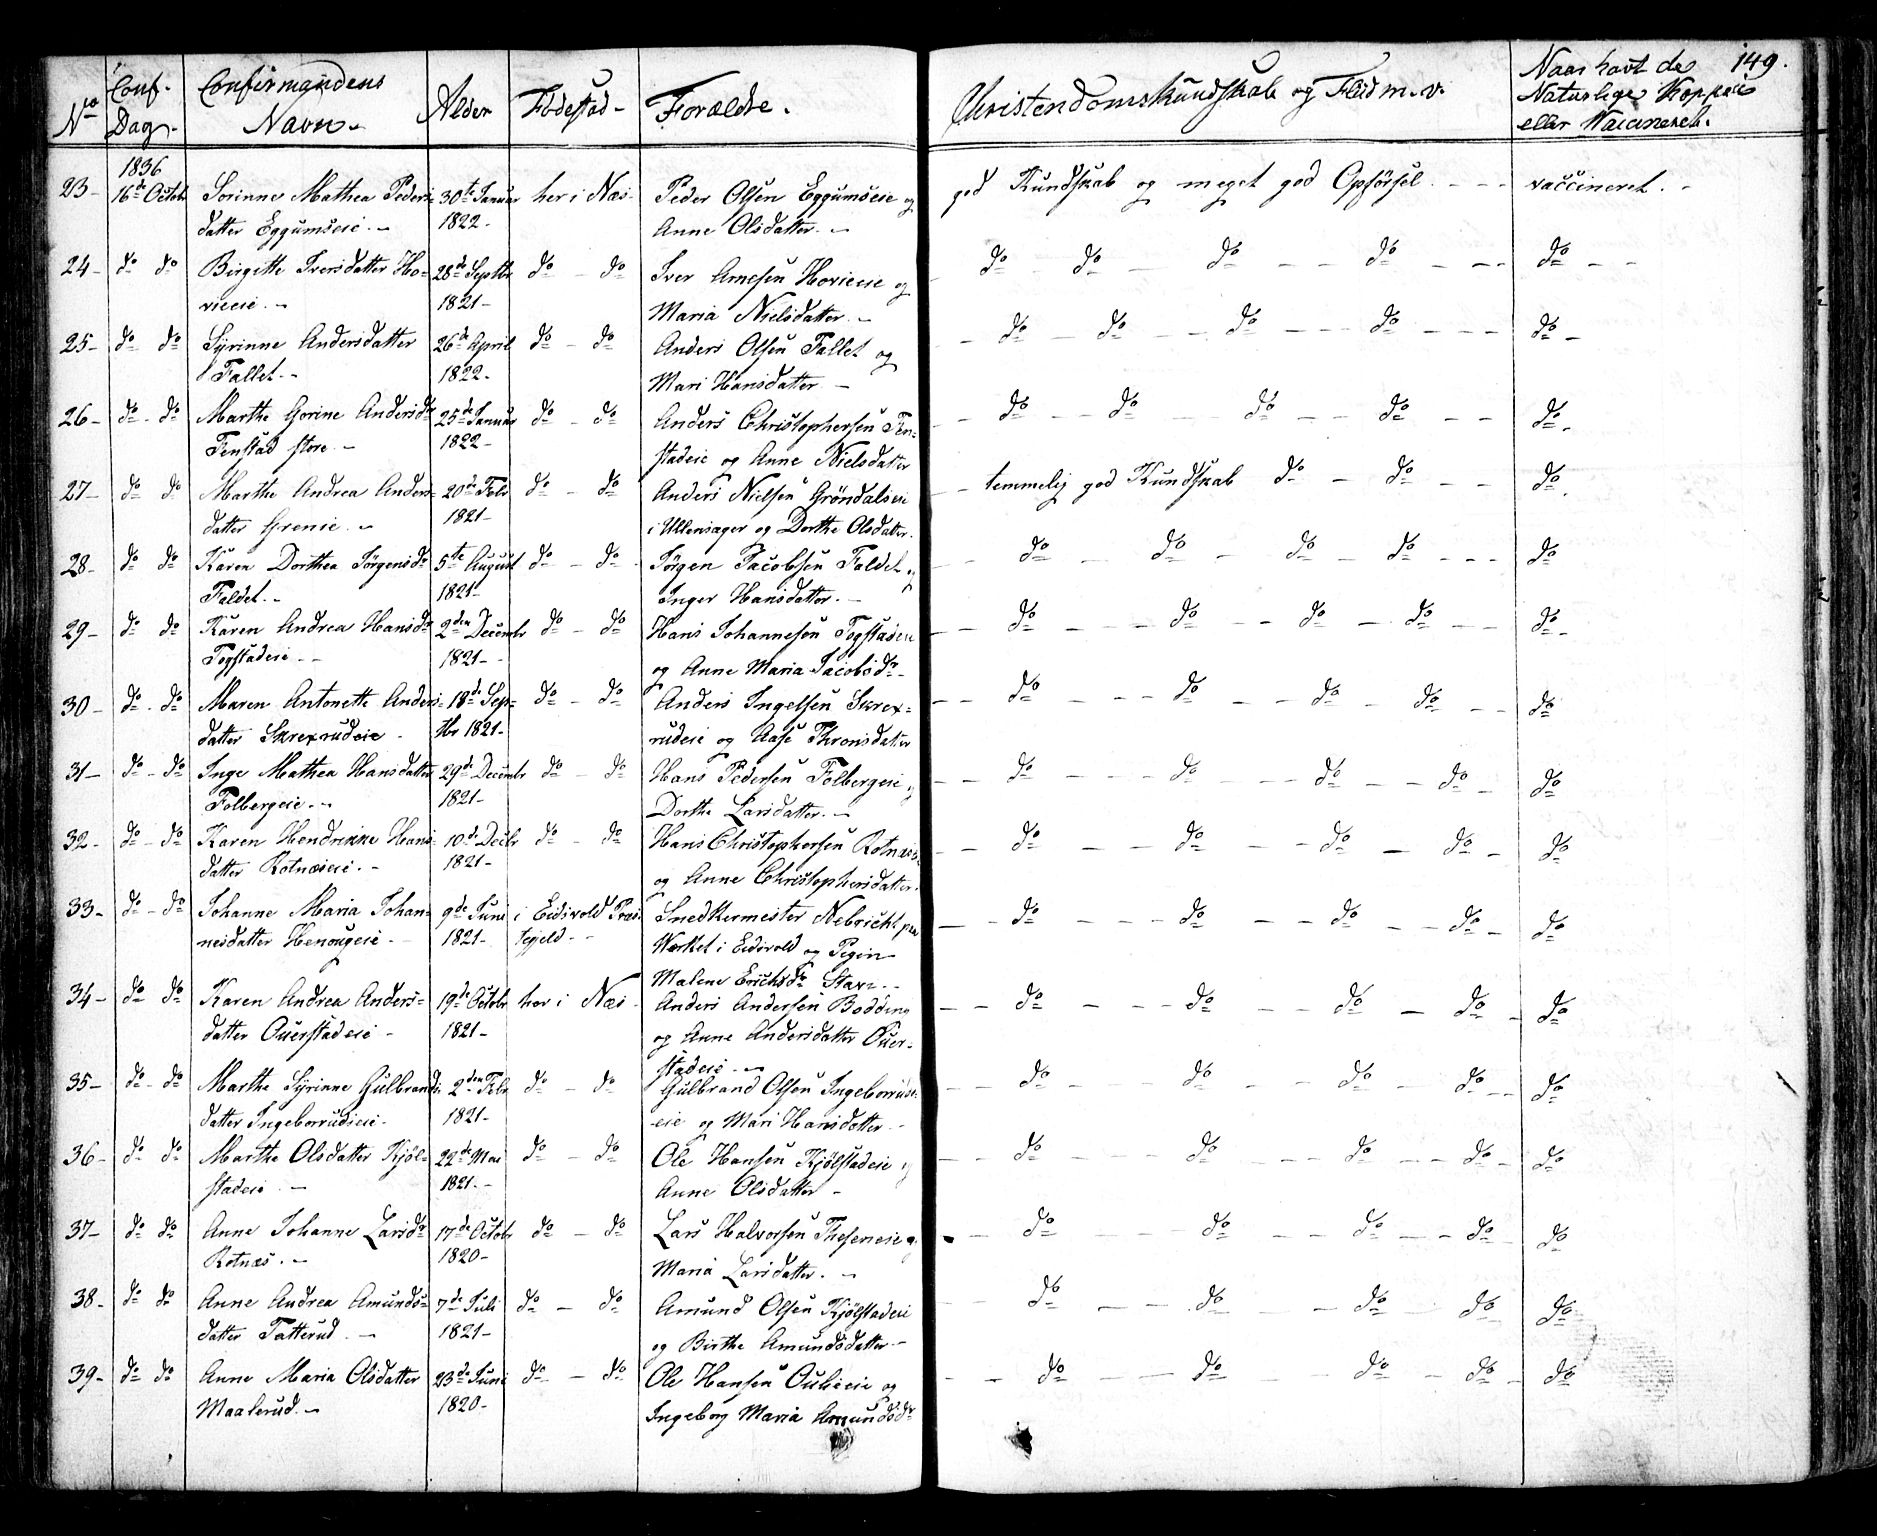 149.
No
Conf. Dag.
Confirmandens Navn.
Alder
Fødested.
Forældre.
Christendomskundskab og Flid m.v.
Naar havt de Naturlige Kopper eller Vaccineret.
1836
23- 16de Octob. Sorinne Mathea Peders- 30te Januar her i Næs- Peder Olsen Eggumseie og god Kundskab og meget god Opførsel. - - - vaccineret. -
datter Eggumseie. - 1822- Anne Olsdatter. -
24- do do Birgitte Iversdatter Ho- 28de Septbr do - do Iver Arnesen Hovieeie og do do - do - - do - - - do - -
vieeie. - 1821- Maria Nielsdatter. -
25- do do Syrinne Andersdatter 26de April do - do Anders Olsen Fallet og - do - do - - do - - - do - - - do -
Fallet. - 1822- Mari Hansdatter -
26- do - do Marthe Gorine Andersdr 25de Januar do - do Anders Christophersen Fen- - do - - do - do - - do - - do.
Fenstad store. - 1822- stadeie og Anne Nielsdatter
27- do do Marthe Andrea Anders- 20de Febr do - do Anders Nielsen Grøndalseie - temmelig god Kundskab do - do - - do.
datter Grenie. - 1821- i Ullensager og Dorthe Olsdatter.
28- do do Karen Dorthea Jørgensdr 5te August do - do Jørgen Jacobsen Faldet og - - do - do - do - do - - - do
Faldet. - 1821- Inger Hansdatter. -
29- do do Karen Andrea Hansdr 2den Decembr do - do Hans Johannesen Fogstadeie - - do - - - do - - do - do - - do -
Fogstadeie - - 1821- - og Anne Maria Jacobsdr -
30- do - do Maren Antonette Anders- 18de Sep- do - do Anders Ingelsen Skrex- - - do - - - do - do - do - - do
datter Skrexrudeie - tbr 1821- rudeie og Aase Thronsdatter
31- do - do Inge Mathea Hansdatter 29de Decembr do - do Hans Pedersen Folbergeie og - do - - - do - - do - do - do
Folbergeie. - 1821- Dorthe Larsdatter. -
32- do - do Karen Hendrikke Hans- 10de Decbr do - do Hans Christophersen Rotnæs - - do - - do - - do - do - do
datter Rotnæseie. - 1821- og Anne Christophersdatter.
33- do - do Johanne Maria Johan- 9de Juni i Eidsvold Præs- Snedkermester Nebricht paa - do - - do - - do - do - do
nesdatter Henougeie - 1821- tegjeld - - Værket i Eidsvold og Pigen
Malene Erichsdr -
34- do do Karen Andrea Anders- 19de Octobr her i Næs - Anders Andersen Bødding - - do - - do - - do - do - do
datter Ouerstadeie - 1821- og Anne Andersdatter Ouer-
stadeie -
35- do - do Marthe Syrinne Gulbrands- 2den Febr do - do Gulbrand Olsen Ingeborruds- - - do - - do - - do - do - - do
datter Ingeborrudseie. 1821- eie og Mari Hansdatter -
36- do do Marthe Olsdatter Kjøl- 22de Mai do - do Ole Hansen Kjølstadeie og - - do - - do - - do - - do - do
stadeie. - 1821. - Anne Olsdatter -
37- do do Anne Johanne Larsdr 17de Octobr do - do Lars Halvorsen Theseneie og - - do - - - do - - do - - do - do
Rotnæs. - 1820- Maria Larsdatter. -
38- do do Anne Andrea Amunds- 7de Juli do - do Amund Olsen Kjølstadeie - do - - - do - - do - do - do
datter Tatterud. - 1821- og Birthe Amundsdatter -
39- do do Anne Maria Olsdatter 23de Juni do - do Ole Hansen Oulieeie og - - do - - do - - do - do - do
Maalerud. - 1820- Ingeborg Maria Amundsdr